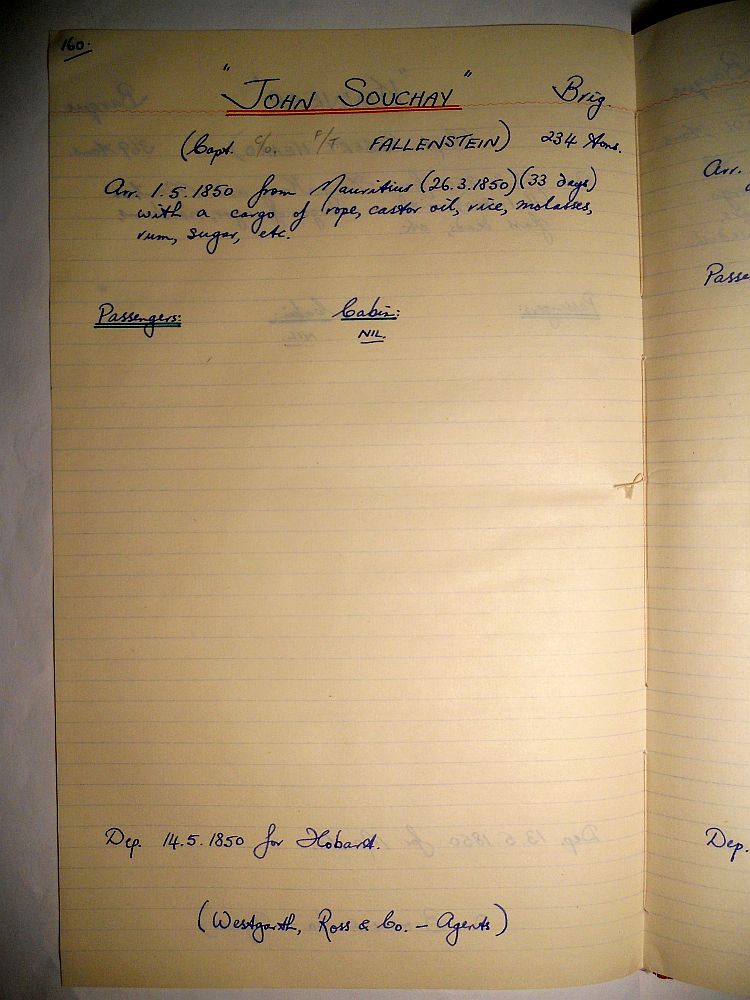 160.
"JOHN SOUCHAY" Brig.
(Capt. C/o. F/T FALLENSTEIN) 234 tons.
Arr. 1.5.1850 from Mauritius (26.3.1850) (33 days)
with a cargo of rope, castor oil, rice, molasses,
rum, sugar, etc.
Passengers: Cabin:
NIL.
Dep. 14.5.1850 for Hobart.
(Westgarth, Ross & Co. - Agents)
Arr.
Passe
Dep.